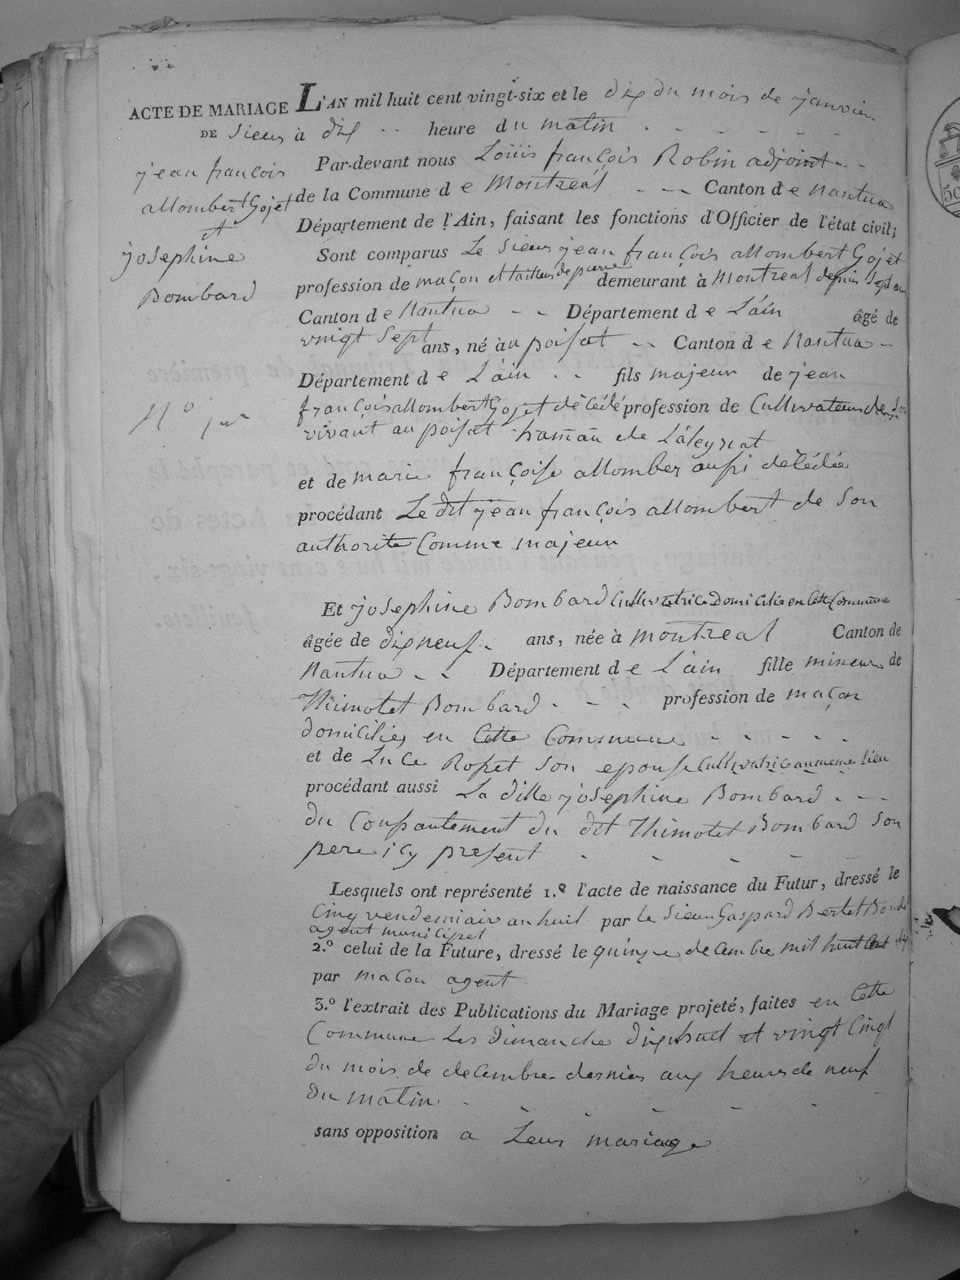 ACTE DE MARIAGE
DE Sieur
jean françois
allombert Gojet
et
josephine
Bombard
N.º 1er
L'AN mil huit cent vingt-six et le dix du mois de janvier
à dix heure du matin
Par-devant nous Loüis françois Robin adjoint
de la Commune de Montréal Canton de Nantua
Département de l'Ain, faisant les fonctions d'Officier de l'état civil;
Sont comparus Le Sieur jean françois allombert Gojet
profession de maçon et tailleur de pierre demeurant à Montreal depuis Sept an
Canton de Nantua Département de L'ain âgé de
vingt Sept ans, né au poisat Canton de Nantua
Département de L'ain fils majeur de jean
françois allombert Gojet décédé profession de Cultivateur de Son
vivant au poisat hameau de Laleyriat
et de marie françoise allombert aussi décédée
procédant Le dit jean françois allombert de Son
authorite Comme majeur
Et josephine Bombard Cultivatrice Domiciliée en Cette Commune
âgée de dix neuf ans, née à montreal Canton de
Nantua Département de L'ain fille mineur de
Thimotet Bombard profession de maçon
domiciliés en Cette Commune
et de Luce Roset Son epouse Cultivatrice au meme lieu
procédant aussi La ditte josephine Bombard
du Consantement du dit Thimotet Bombard Son
pere icy present
Lesquels ont représenté 1.º l'acte de naissance du Futur, dressé le
Cinq vendemiair an huit par le Sieur Gaspard Bertet
agent municipal
2.º celui de la Future, dressé le quinze decembre mil huit Cent Six
par macon agent
3.º l'extrait des Publications du Mariage projeté, faites en Cette
Commune Les dimanche dix huit et vingt Cinq
du mois de decembre dernier aux heures de neuf
du matin
sans opposition a Leur mariage